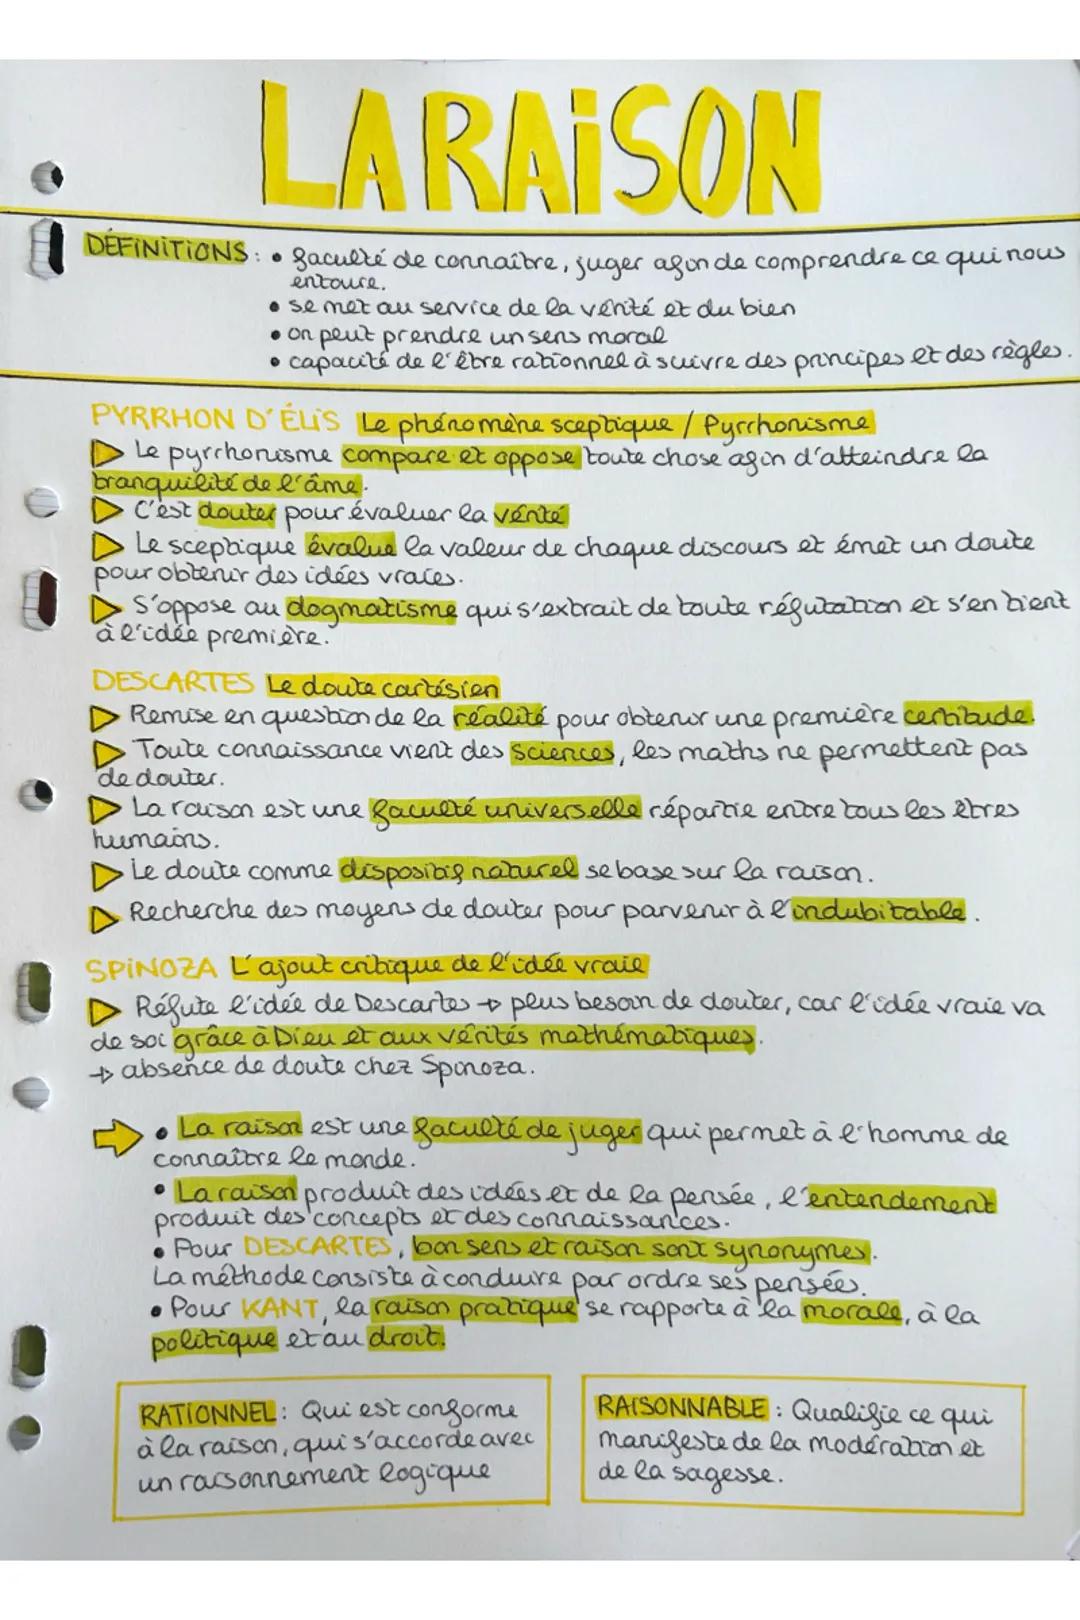 LA RAiSON
DÉFiNiTiONS : • faculté de connaître, juger afin de comprendre ce qui nous
entoure.
• se met au service de la vérité et du bien
• on peut prendre un sens moral
• capacité de l'être rationnel à suivre des principes et des règles.
PYRRHON D'ÉLiS Le phénomène sceptique / Pyrrhonisme
Le pyrrhonisme compare et oppose toute chose afin d'atteindre la
tranquilité de l'âme.
C'est douter pour évaluer la vérité
Le sceptique évalue la valeur de chaque discours et émet un doute
pour obtenir des idées vraies.
S'oppose au dogmatisme qui s'extrait de toute réfutation et s'en tient
à l'idée première.
DESCARTES Le doute cartésien
Remise en question de la réalité pour obtenir une première certitude.
Toute connaissance vient des sciences, les maths ne permettent pas
de douter.
La raison est une faculté universelle répartie entre tous les êtres
humains.
Le doute comme dispositif naturel se base sur la raison.
Recherche des moyens de douter pour parvenir à l'indubitable.
SPiNOZA L'ajout critique de l'idée vraie
Réfute l'idée de Descartes → plus besoin de douter, car l'idée vraie va
de soi grâce à Dieu et aux vérités mathématiques.
→ absence de doute chez Spinoza.
• La raison est une faculté de juger qui permet à l'homme de
connaître le monde.
• La raison produit des idées et de la pensée, l'entendement
produit des concepts et des connaissances.
• Pour DESCARTES, bon sens et raison sont synonymes.
La méthode consiste à conduire par ordre ses pensées.
• Pour KANT, la raison pratique se rapporte à la morale, à la
politique et au droit.
RATIONNEL : Qui est conforme
à la raison, qui s'accorde avec
un raisonnement logique
RAISONNABLE : Qualifie ce qui
manifeste de la modération et
de la sagesse.